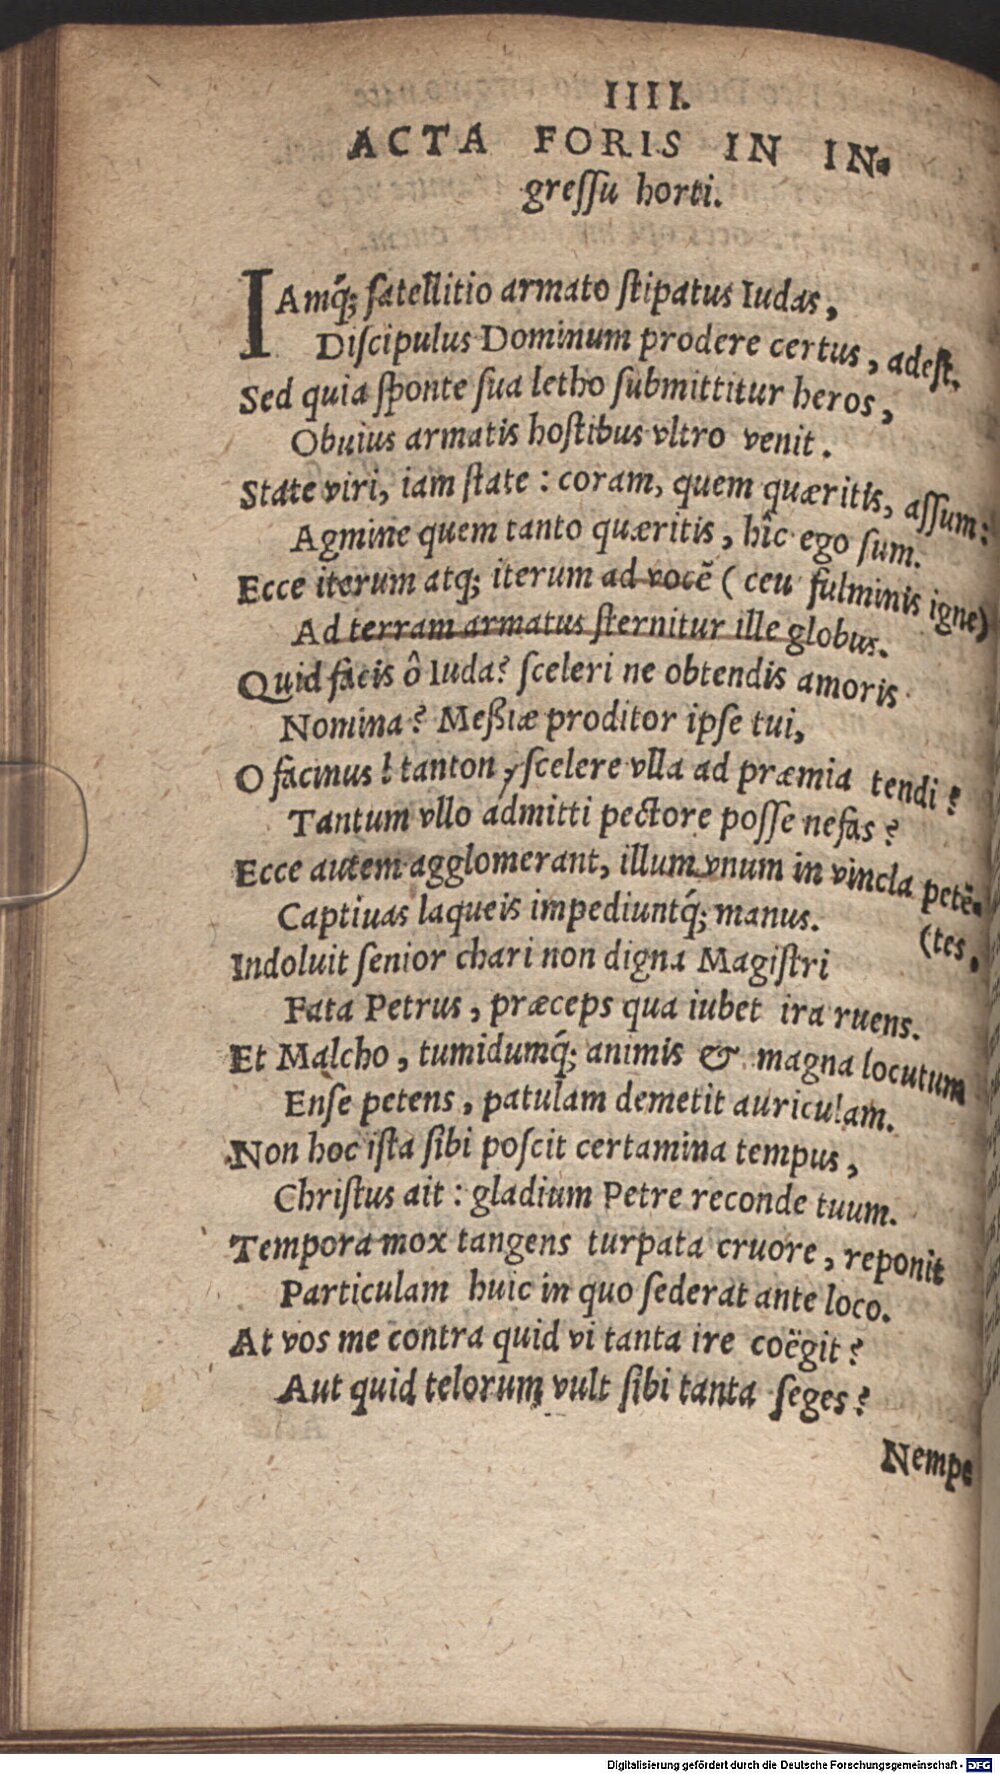 IIII.
ACTA FORIS IN IN-
greſſu horti.
IAmq́; ſatellitio armato ſtipatus Iudas,
Diſcipulus Dominum prodere certus, adeſt.
Sed quia ſponte ſua letho ſubmittitur heros,
Obuius armatis hoſtibus vltro venit.
State viri, iam ſtate: coram, quem quæritis, aſſum:
Agmine quem tanto quæritis, hîc ego ſum.
Ecce iterum atq; iterum ad vocē (ceu fulminis igne)
Ad terram armatus ſternitur ille globus.
Quid facis ô Iuda? ſceleri ne obtendis amoris
Nomina? Meßiæ proditor ipſe tui,
O facinus! tanton, ſcelere vlla ad præmia tendi?
Tantum vllo admitti pectore poſſe nefas?
Ecce autem agglomerant, illum vnum in vincla petē-
(tes,
Captiuas laqueis impediuntq́; manus.
Indoluit ſenior chari non digna Magiſtri
Fata Petrus, præceps qua iubet ira ruens.
Et Malcho, tumidumq́; animis & magna locutum
Enſe petens, patulam demetit auriculam.
Non hoc iſta ſibi poſcit certamina tempus,
Chriſtus ait: gladium Petre reconde tuum.
Tempora mox tangens turpata cruore, reponit
Particulam huic in quo ſederat ante loco.
At vos me contra quid vi tanta ire coëgit?
Aut quid telorum vult ſibi tanta ſeges?
Nempe
Digitalisierung gefördert durch die Deutsche Forschungsgemeinschaft - DFG